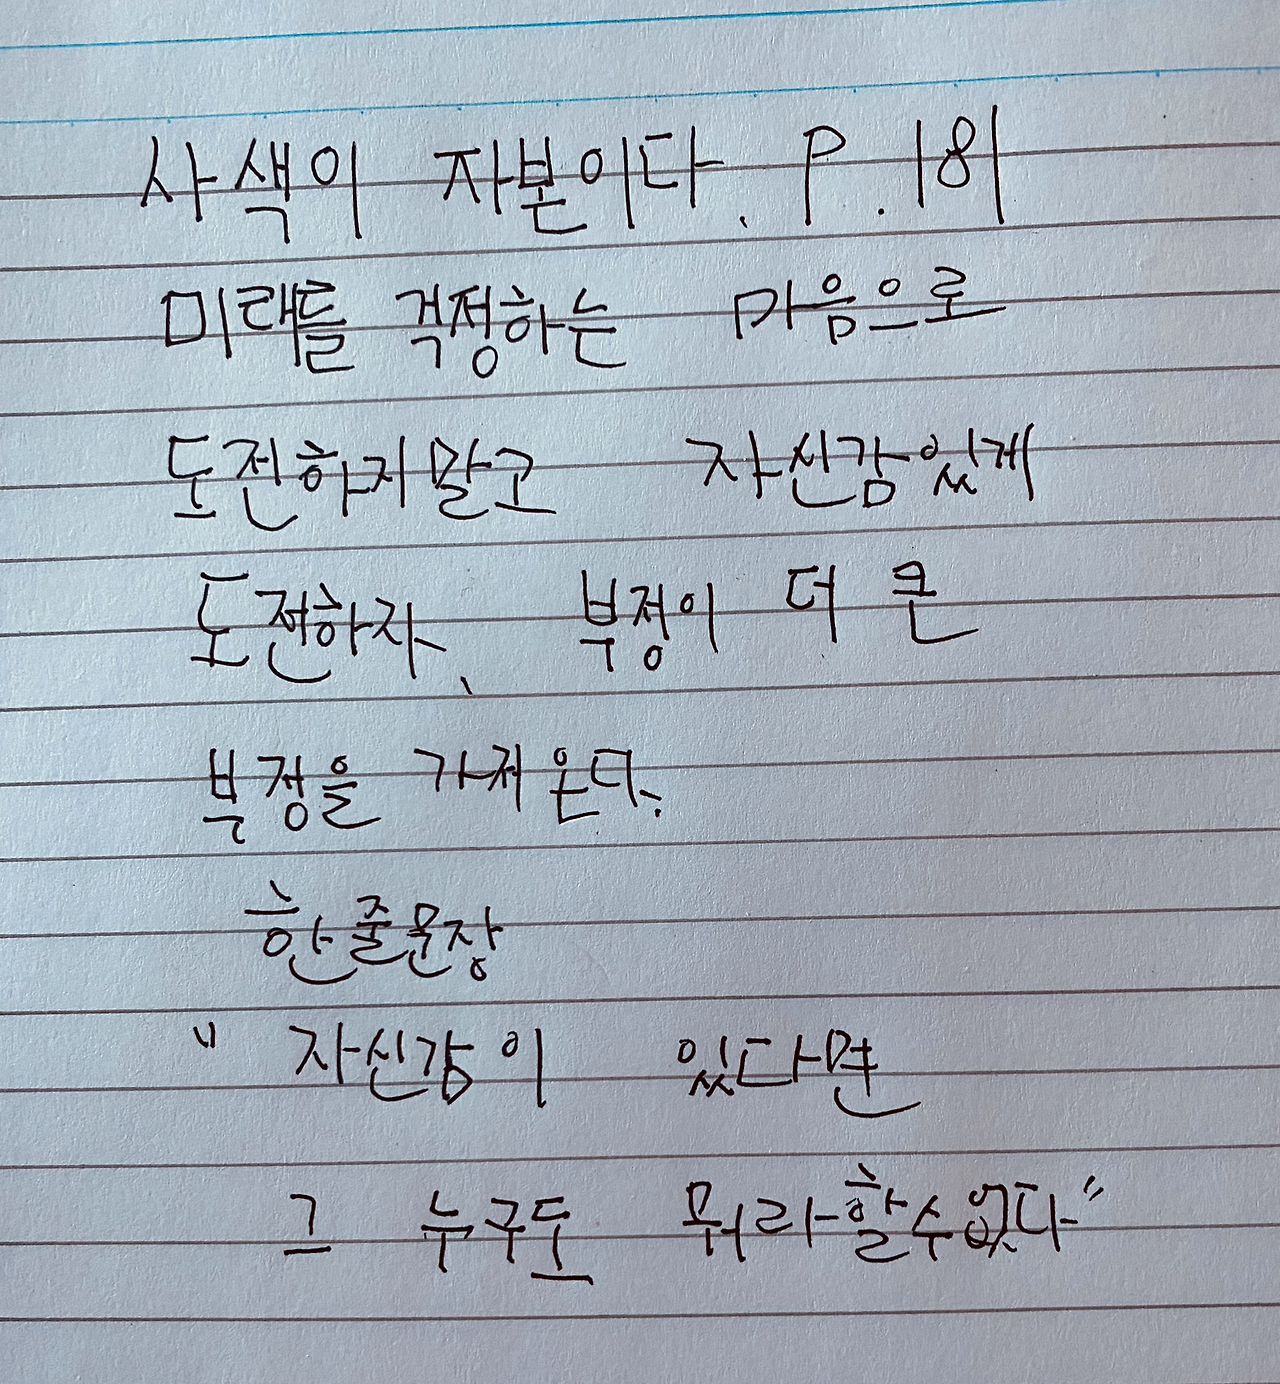 사색이 자본이다. P. 181
미래를 걱정하는 마음으로
도전하지말고 자신감있게
도전하자. 부정이 더 큰
부정을 가져온다.
한줄문장
"자신감이 있다면
그 누구도 뭐라할수없다"